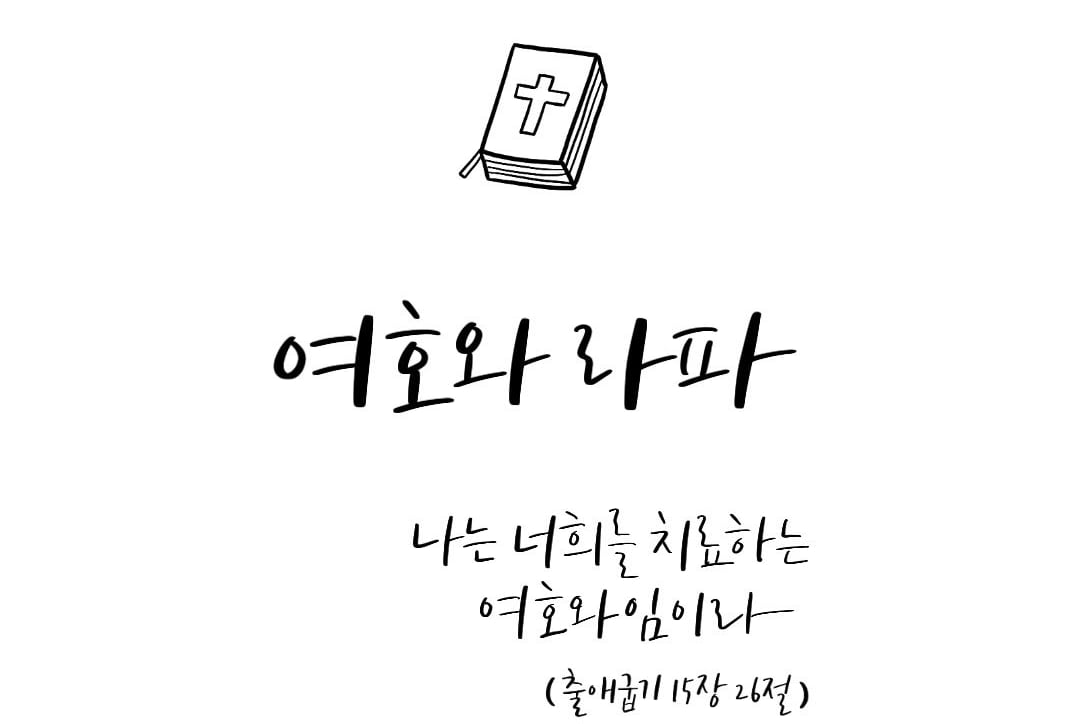 여호와 라파
나는 너희를 치료하는
여호와임이라
(출애굽기 15장 26절)